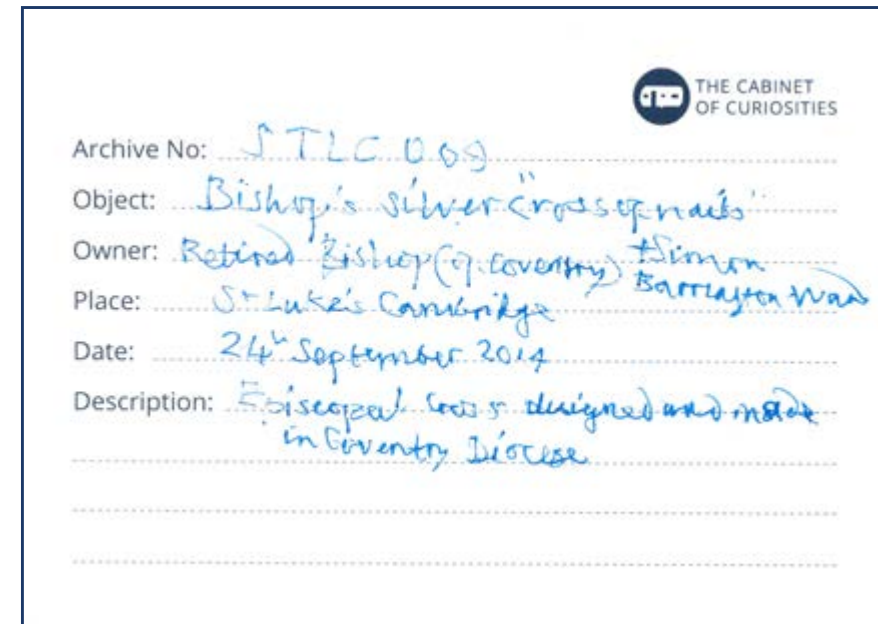 THE CABINET
OF CURIOSITIES
Archive No: STLC 009
Object: Bishop's silver "Cross of nails"
Owner: Retired Bishop (of Coventry) +Simon
Barrington Ward
Place: St Luke's Cambridge
Date: 24th September 2014
Description: Episcopal Cross designed and made
in Coventry Diocese